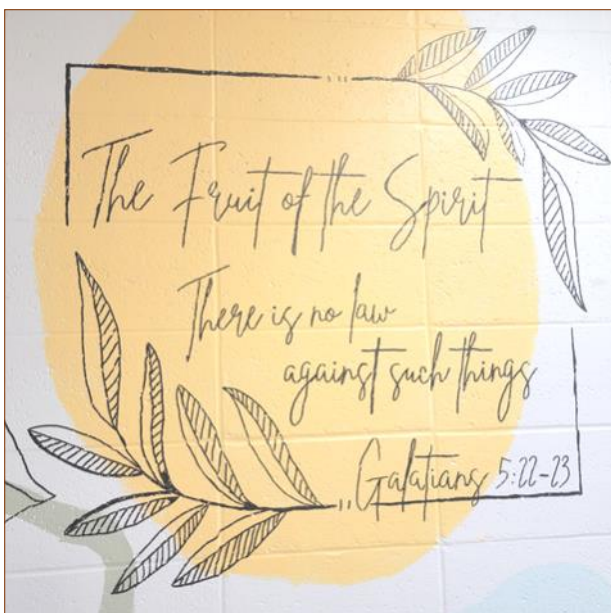 The Fruit of the Spirit
There is no law
against such things
Galatians 5:22-23